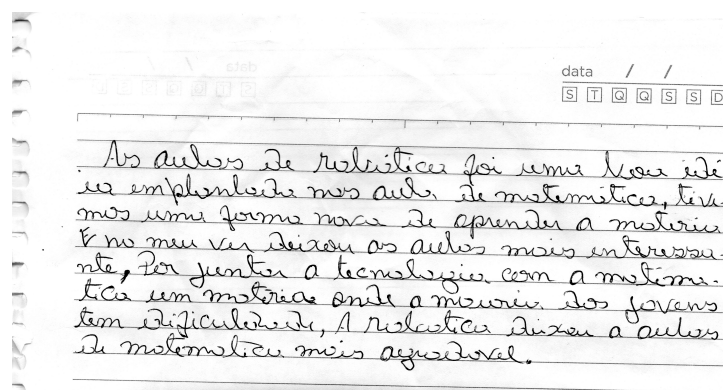 data / /
S T Q Q S S D
As aulas de robótica foi uma boa idé
ia emplantada nas aula de matemática, tive
mos uma forma nova de aprender a matéria
E no meu ver deixou as aulas mais interessa-
nte, Por juntar a tecnologia com a matemá-
tica um matéria onde a maioria dos jovens
tem dificuldade, A robótica deixou a aulas
de matematica mais agradavel.